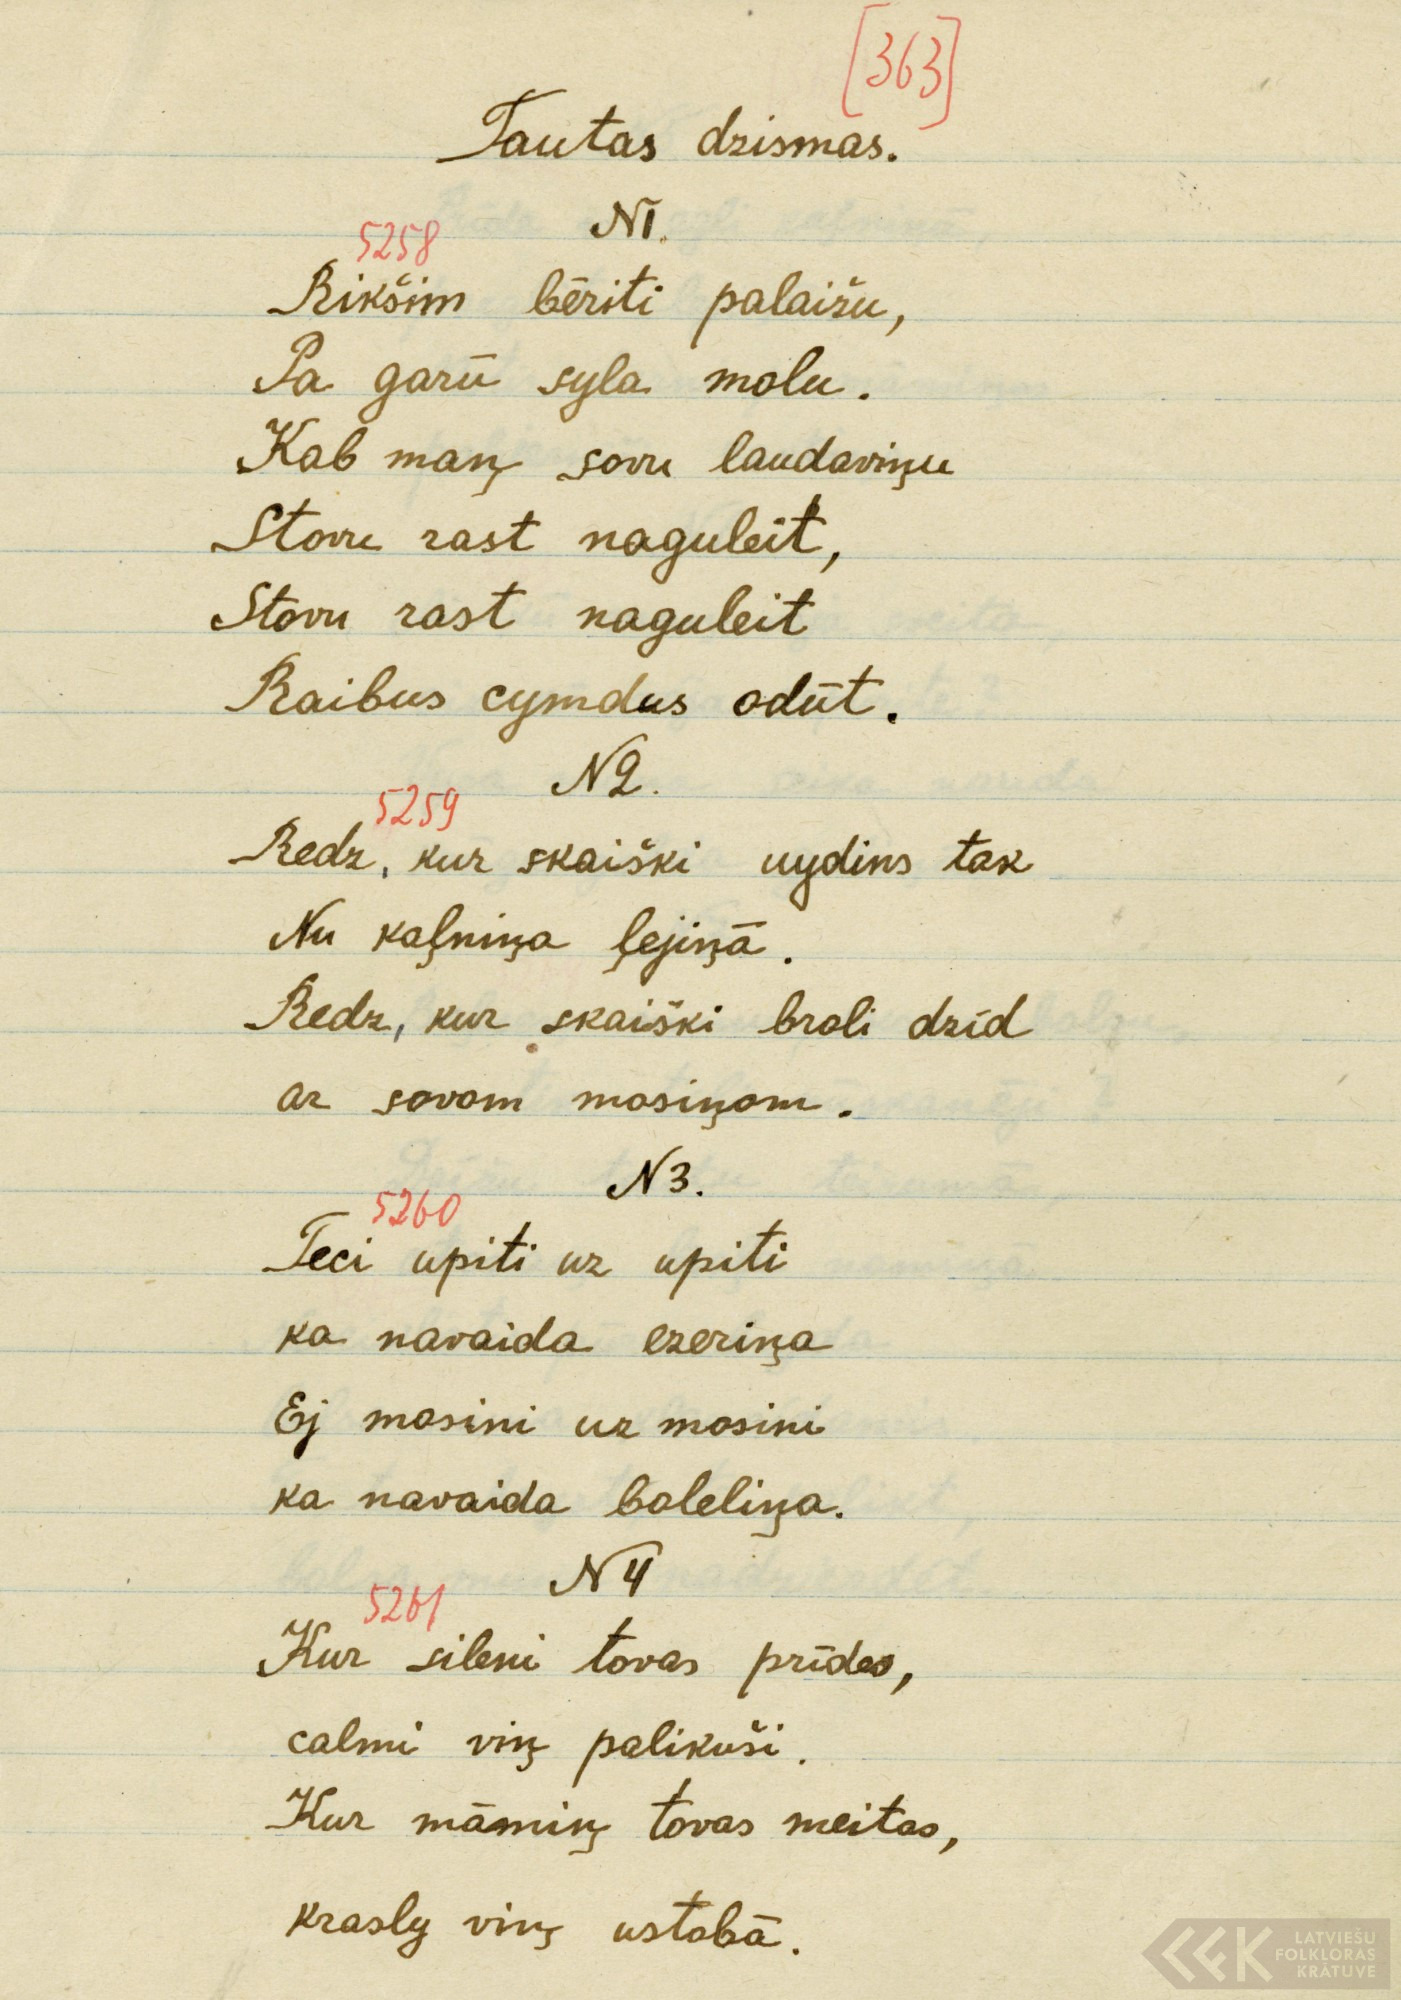 [363]
Tautas dzismas.
N1.
5258
Rikšim bēriti palaižu,
Pa garū syla molu.
Kab maņ sovu laudaviņu
Stovu rast naguleit,
Stovu rast naguleit
Raibus cymdus odūt.
N2.
5259
Redz, kur skaiški uydins tak
Nu kaļniņa ļejiņā.
Redz, kur skaiški broli dzīd
ar sovom mosiņom.
N3.
5260
Teci upiti uz upiti
ka navaida ezeriņa
Ej mosini uz mosini
ka navaida boleliņa.
N4
5261
Kur sileni tovas prīdes,
calmi viņ palikuši.
Kur māmiņ tovas meitas,
krasly viņ ustobā.
LATVIEŠU
FOLKLORAS
KRĀTUVE